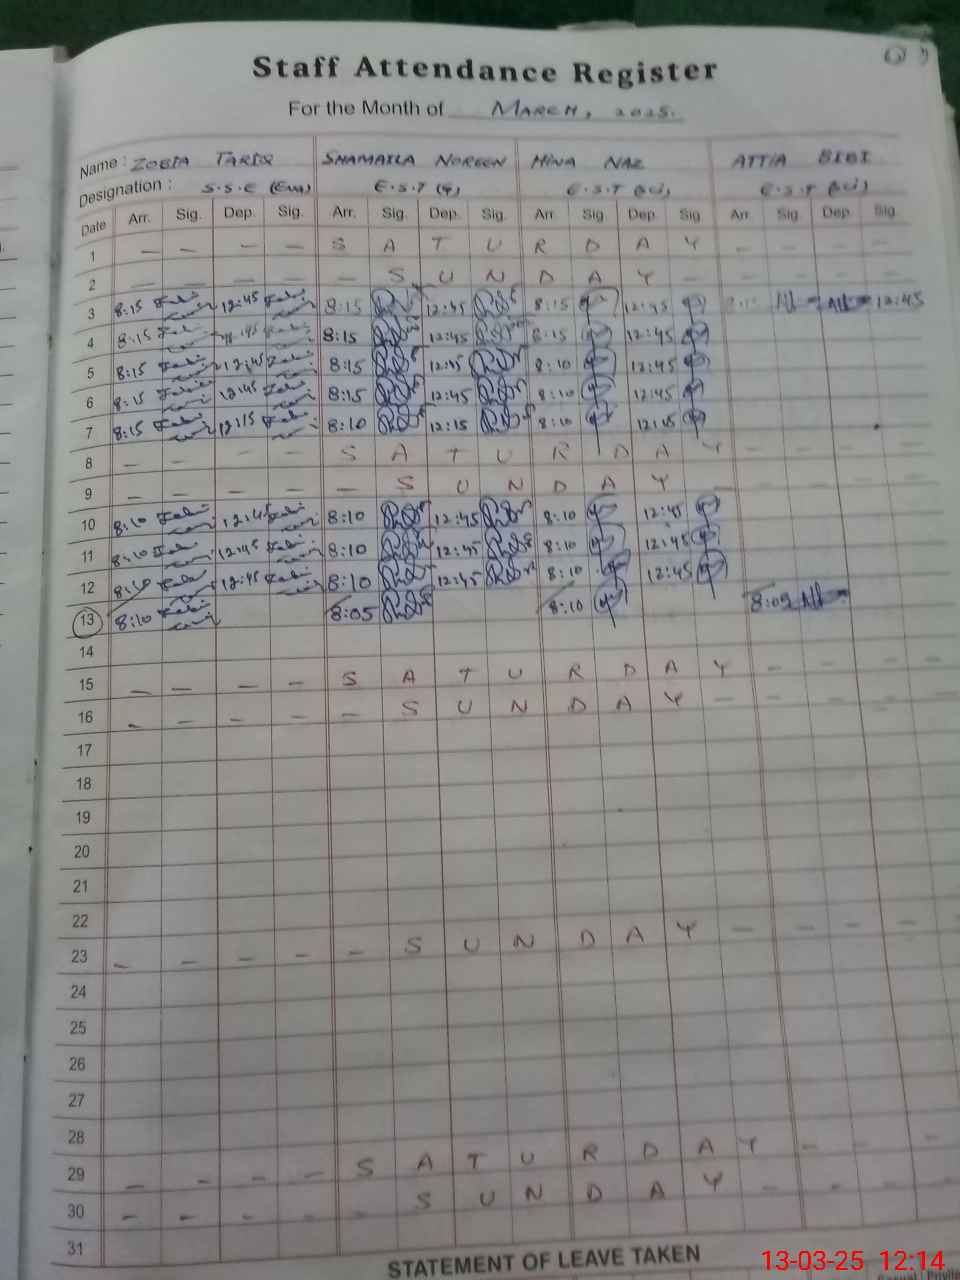 Staff Attendance Register
For the Month of MARCH, 2025.
Name : ZOBIA TARIQ SHAMAILA NOREEN HINA NAZ ATTIA BIBI
Designation : S.S.E (Eng) E.S.T (G) E.S.T (Sci) E.S.T (Sci)
Date Arr. Sig. Dep. Sig. Arr. Sig. Dep. Sig. Arr. Sig Dep. Sig Arr. Sig. Dep. Sig.
1 – – – – S A T U R D A Y – – –
2 – – – – – S U N D A Y – – – –
3 8:15 12:45 8:15 12:45 8:15 12:45 12:45
4 8:15 8:15 12:45 8:15 12:45
5 8:15 12:45 8:15 12:45 8:10 12:45
6 8:15 12:45 8:15 12:45 8:10 12:45
7 8:15 12:15 8:10 12:15 8:10 12:45
8 – – – – S A T U R D A Y – – –
9 – – – – – S U N D A Y – – – –
10 8:10 12:45 8:10 12:45 8:10 12:45
11 8:10 12:45 8:10 12:45 8:10 12:45
12 8:10 12:45 8:10 12:45 8:10 12:45
13 8:10 8:05 8:10 8:09
14
15 – – – – S A T U R D A Y – – – –
16 – – – – – S U N D A Y – – – –
17
18
19
20
21
22
23 – – – – – S U N D A Y – – – –
24
25
26
27
28
29 – – – – S A T U R D A Y – – –
30 – – – – S U N D A Y – – – –
31
STATEMENT OF LEAVE TAKEN
13-03-25 12:14